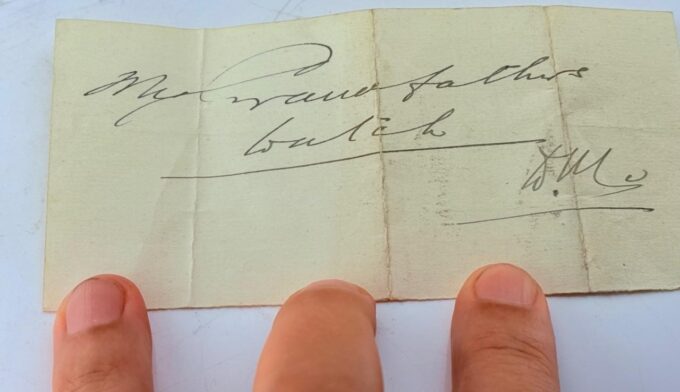 My Grandfathers
watch
D. Mc